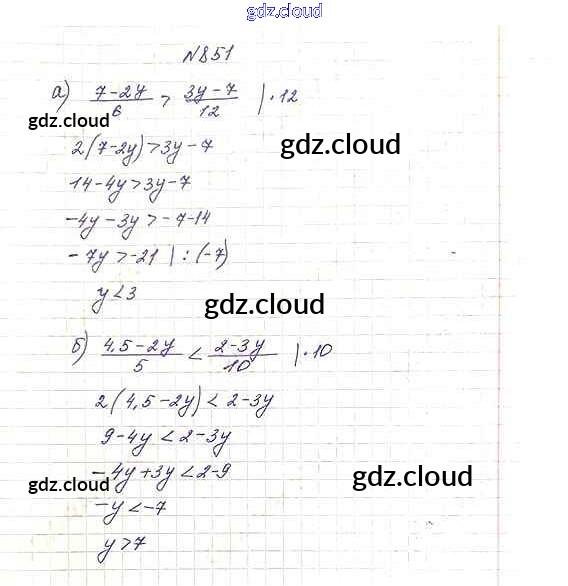 gdz.cloud
№851
а) (7-2y)/6 > (3y-7)/12 |·12
gdz.cloud
2(7-2y)>3y-7
gdz.cloud
14-4y>3y-7
-4y-3y>-7-14
-7y>-21 |:(-7)
y<3
gdz.cloud
б) (4,5-2y)/5 < (2-3y)/10 |·10
2(4,5-2y)<2-3y
9-4y<2-3y
-4y+3y<2-9
gdz.cloud
gdz.cloud
-y<-7
y>7